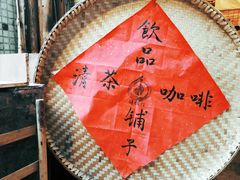 飲品鋪子
清茶
咖啡